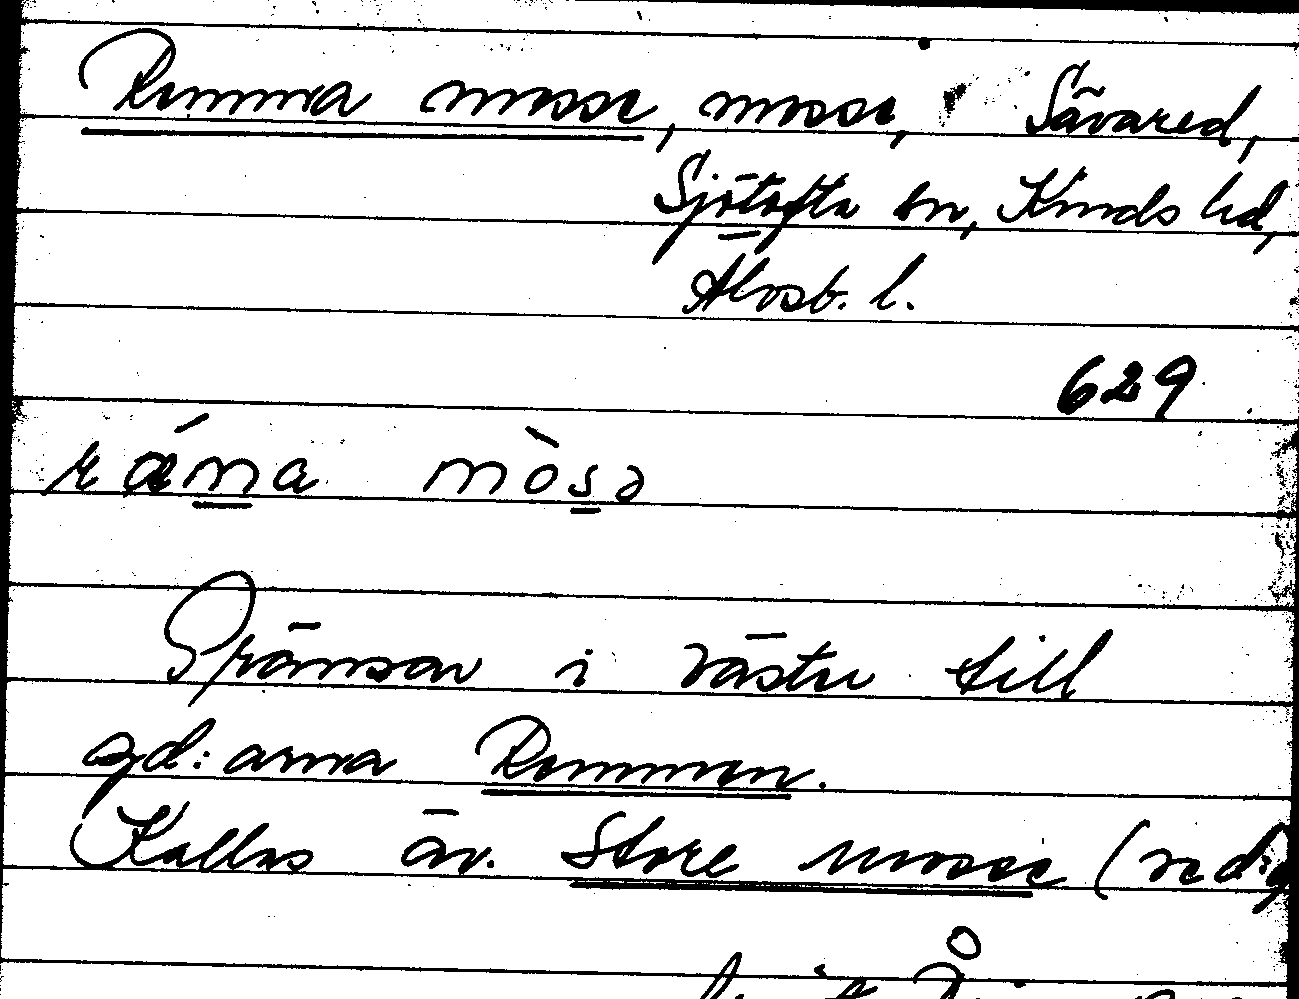 Remma mosse, mosse, Sävared,
Sjötofta sn, Kinds hd,
Älvsb. l.
629
rǽma mòsə
Gränsar i väster till
gd:arna Remmen.
Kallas äv. Store mosse (nedg